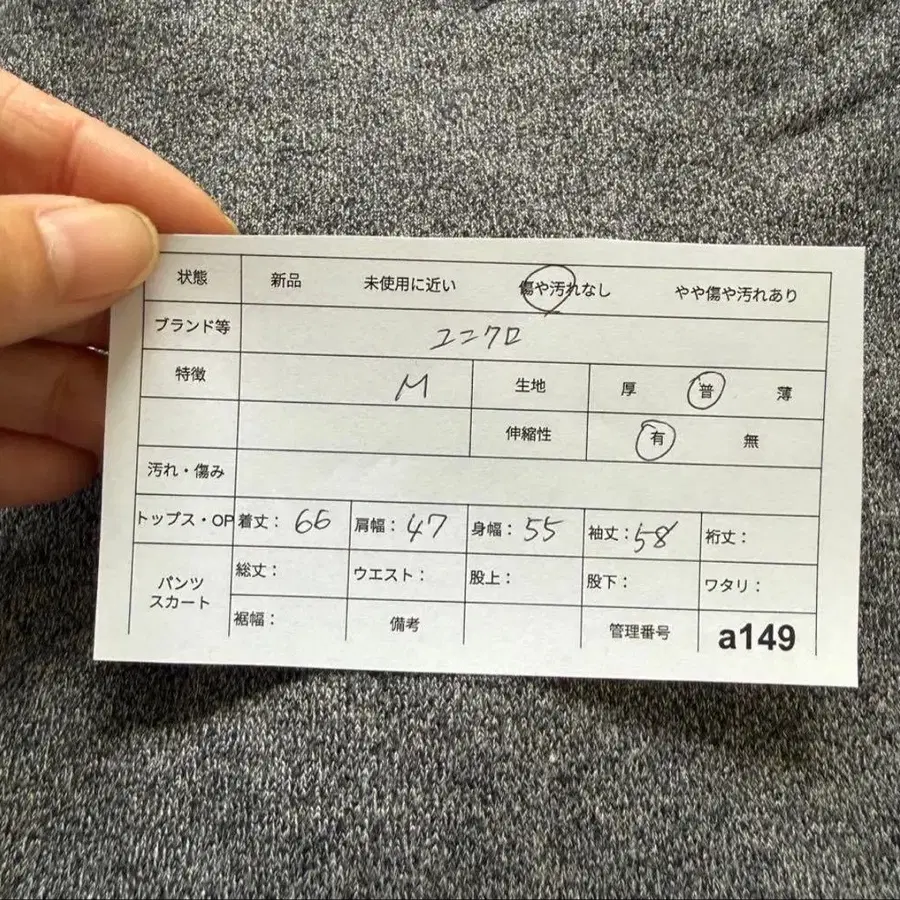 状態 新品 未使用に近い 傷や汚れなし やや傷や汚れあり
ブランド等 ユニクロ
特徴 M 生地 厚 普 薄
伸縮性 有 無
汚れ・傷み
トップス・OP 着丈： 66 肩幅： 47 身幅： 55 袖丈： 58 裄丈：
パンツ スカート 総丈： ウエスト： 股上： 股下： ワタリ：
裾幅： 備考 管理番号 a149